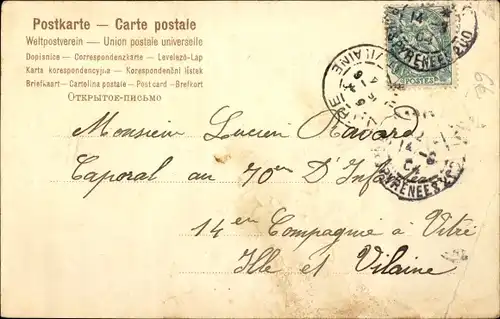 Postkarte — Carte postale
Weltpostverein — Union postale universelle
Dopisnice — Correspondenzkarte — Levelező-Lap
Karta korespondencyjna — Korespondenční lístek
Briefkaart — Cartolina postale — Post card — Brefkort
ОТКРЫТОЕ-ПИСЬМО
POSTES
VILAINE
PYRENEES
Monsieur Lucien Havard
Caporal au 70en D'Infanterie
14en Compagnie à Vitré
Ille et Vilaine